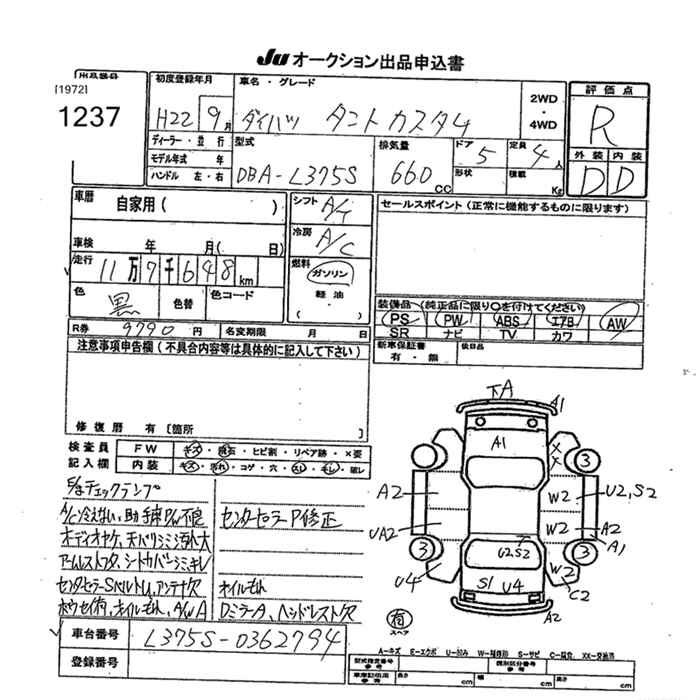 JU オークション出品申込書
出品番号
[1972]
1237
初度登録年月
H22 9月
車名・グレード
ダイハツ タントカスタム
2WD
・
4WD
評価点
R
ディーラー・並行
モデル年式 年
ハンドル 左・右
型式
DBA-L375S
排気量
660 CC
ドア 5
形状
定員 4人
積載 Kg
外装 内装
D D
車歴
自家用( )
シフト A/T
セールスポイント(正常に機能するものに限ります)
車検 年 月( 日)
冷房 A/C
走行
11万7千648km
燃料
ガソリン
軽油
・
( )
色 黒 色替 色コード
装備品(純正品に限り○を付けてください)
PS PW ABS エアB AW
SR ナビ TV カワ
R券 9790円 名変期限 月 日
新車保証書
有・無
後日品
注意事項申告欄(不具合内容等は具体的に記入して下さい)
修復歴 有[箇所
検査員
記入欄
FW キズ・飛石・ヒビ割・リペア跡・×要
内装 キズ・汚れ・コゲ・穴・スレ・キレ・破レ
チェックランプ
A/C冷えない、助手席P/W不良
センターピラーP修正
オーディオヤケ、天バリシミ汚レ大
アームレストワレ、シートカバーシミ、キレ
センターピラーSベルト、アンテナ欠
オイルもれ
オイルもれ、A/W A
DミラーA、ヘッドレスト欠
下A
A1
A1
XX
3
3
A2
W2
U2,S2
UA2
W2
A2
A1
3
3
U2,S2
W2
U4
S1 U4
C2
A2
有
スペア
車台番号 L375S-0362794
登録番号
A-キズ E-エクボ U-凹み W-補修跡 S-サビ C-腐食 XX-交換済
型式指定番号
参考
類別区分番号
参考
車庫証明用
参考
長さ cm 幅 cm 高さ cm